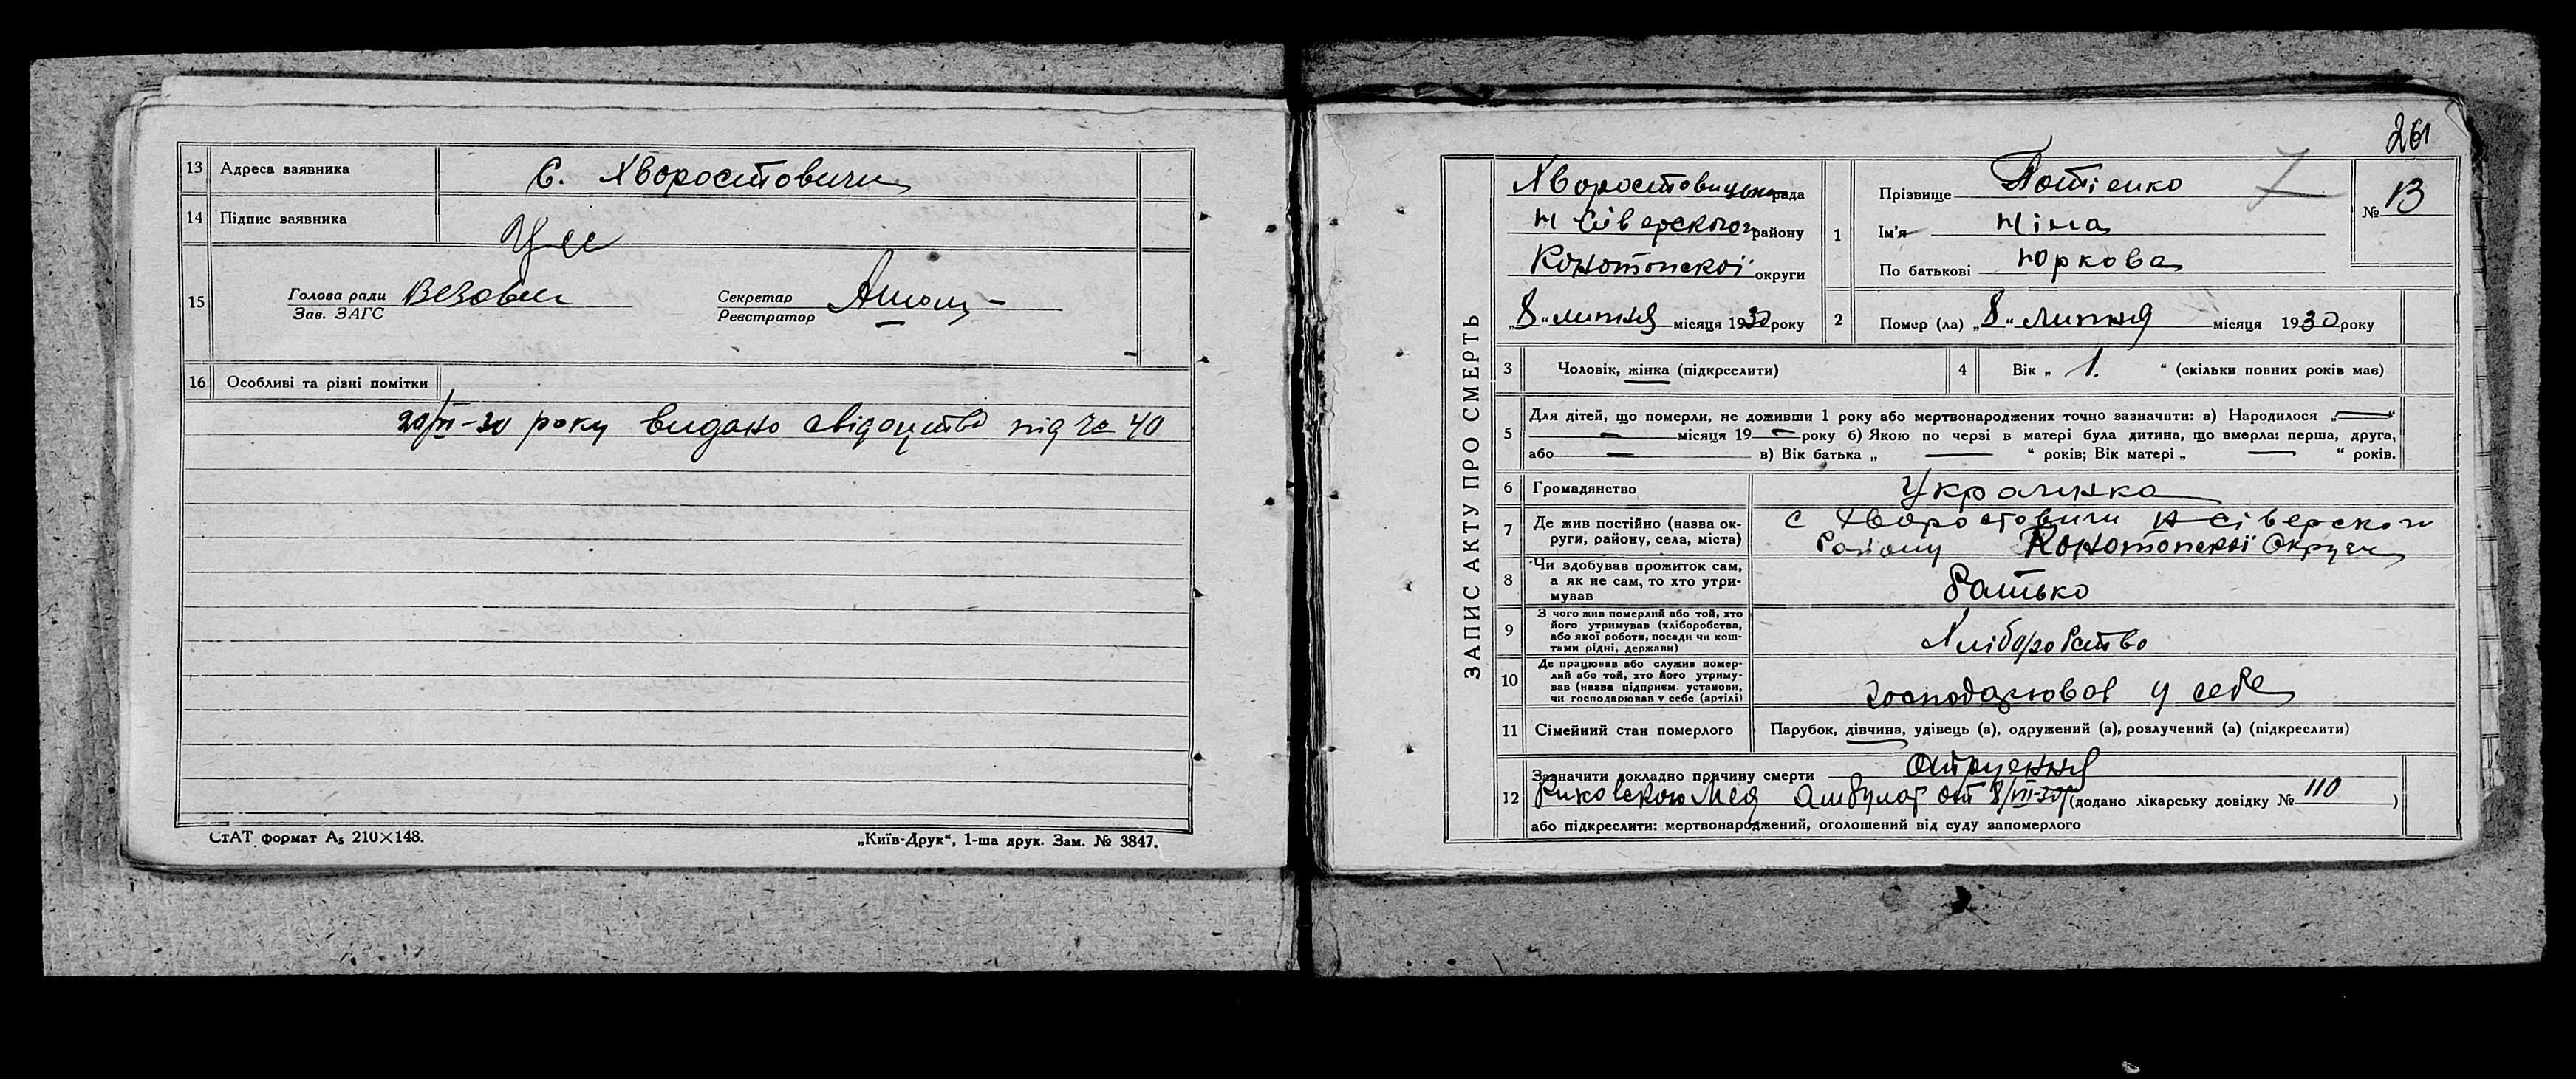 13 Адреса заявника С. Хворостовичи
14 Підпис заявника
15 Голова ради Зав. ЗАГС Секретар Реєстратор
16 Особливі та різні помітки
20/VI-30 року видано свідоцтво під № 40
СтАТ формат А5 210×148.
„Київ-Друк“, 1-ша друк. Зам. № 3847.
261
ЗАПИС АКТУ ПРО СМЕРТЬ
Хворостовицька рада
Н Сіверского району
Конотопскої округи
„8“ липня місяця 1930 року
1 Прізвище Потієнко
Ім'я Ніна
По батькові Юркова
№ 13
2 Помер (ла) „8“ липня місяця 1930 року
3 Чоловік, жінка (підкреслити)
4 Вік „ 1. “ (скільки повних років має)
5 Для дітей, що померли, не доживши 1 року або мертвонароджених точно зазначити: а) Народилося „—“
— місяця 19— року б) Якою по черзі в матері була дитина, що вмерла: перша, друга,
або — в) Вік батька „ — “ років; Вік матері „ — “ років.
6 Громадянство Украінка
7 Де жив постійно (назва округи, району, села, міста) с Хворостовичи Н Сіверского
району Конотопскої Округи
8 Чи здобував прожиток сам, а як не сам, то хто утримував батько
9 З чого жив померлий або той, хто його утримував (хліборобства, або якої роботи, посади чи коштами рідні, держави) Хліборобство
10 Де працював або служив померлий або той, хто його утримував (назва підприєм. установи, чи господарював у себе (артілі) господарював у себе
11 Сімейний стан померлого Парубок, дівчина, удівець (а), одружений (а), розлучений (а) (підкреслити)
12 Зазначити докладно причину смерти Отруення
Мед Амбулат от 8/VII-30р (додано лікарську довідку № 110 )
або підкреслити: мертвонароджений, оголошений від суду запомерлого